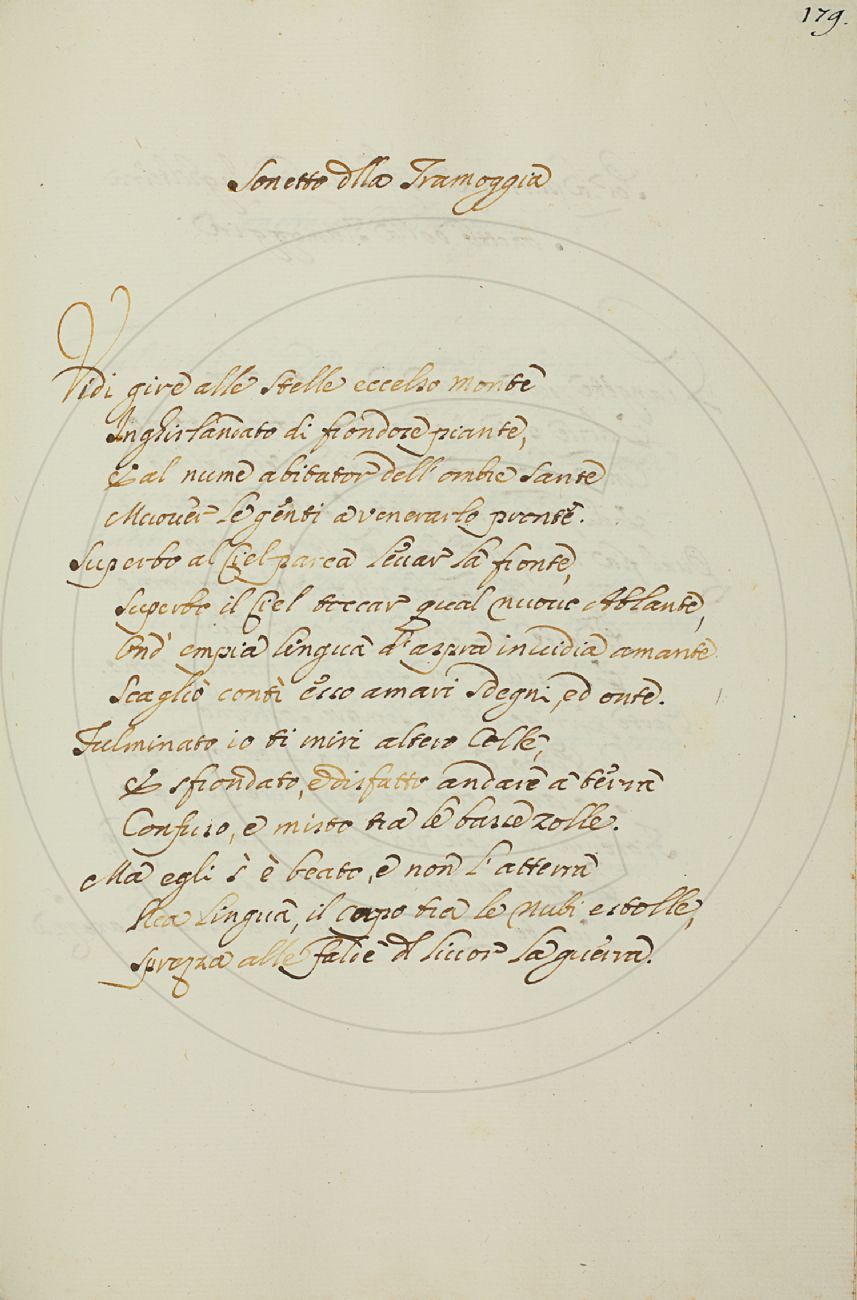 179.
Sonetto dlla Tramoggia
Vidi gire alle stelle eccelso monte
Inghirlandato di frondose piante,
E al nume abitator dell' ombre sante
Muover le genti a venerarlo pronte.
Superbo al Ciel parea levar la fronte,
Superbo il Ciel toccar qual nuovo Atlante,
Ond' empia lingua d' aspra invidia amante
Scagliò contr' esso amari sdegni, ed onte.
Fulminato io ti miri altero Colle,
E sfrondato, e disfatto andare a terra
Confuso, e misto tra le basse zolle.
Ma egli s' è beato, e non l' atterra
Rea lingua, il capo tra le nubi estolle,
Sprezza alle falde d livor la guerra.